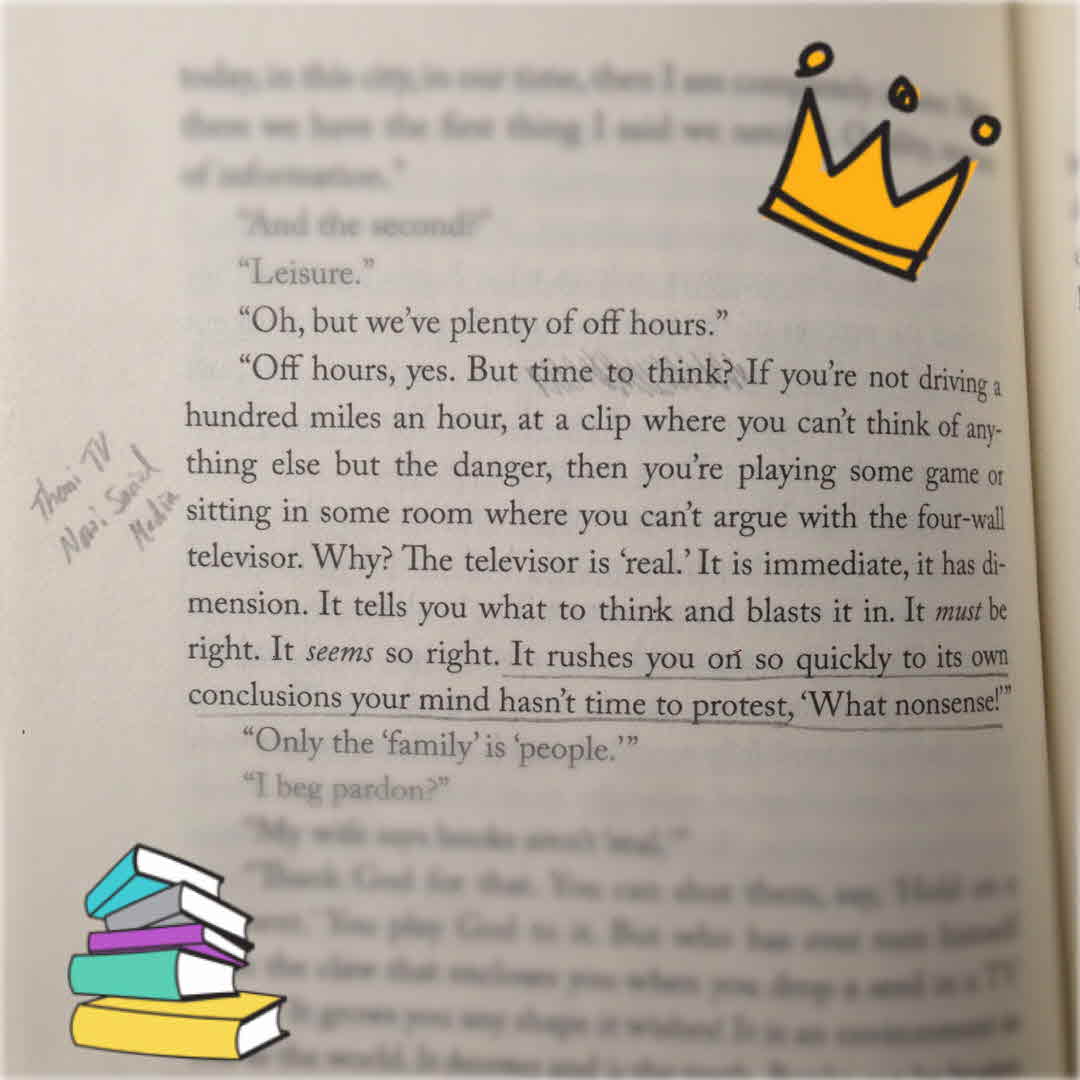 today, in this city, in our time, then I am
there we have the first thing I said we
of information."
"And the second?"
"Leisure."
"Oh, but we've plenty of off hours."
"Off hours, yes. But time to think? If you're not driving a
hundred miles an hour, at a clip where you can't think of any-
thing else but the danger, then you're playing some game or
sitting in some room where you can't argue with the four-wall
televisor. Why? The televisor is 'real.' It is immediate, it has di-
mension. It tells you what to think and blasts it in. It must be
right. It seems so right. It rushes you on so quickly to its own
conclusions your mind hasn't time to protest, 'What nonsense!'"
"Only the 'family' is 'people.'"
"I beg pardon?"
"My wife says books aren't 'real.'"
"Thank God for that. You can shut them, say, 'Hold on a
You play God to it. But who has ever
the claw that encloses you when you drop a seed in a TV
It grows you any shape it wishes! It is an environment
the world. It becomes and is the truth.
Then: TV
Now: Social
Media